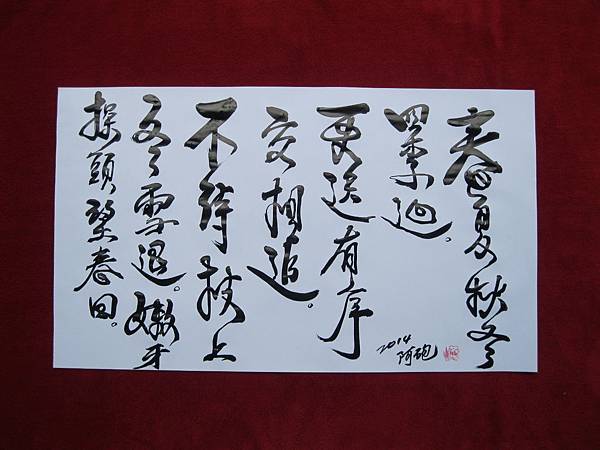 春夏秋冬
四季迴。
更迭有序
交相追。
不待枝上
冬雪退。嫩牙
探頭春回。
2014
阿砲